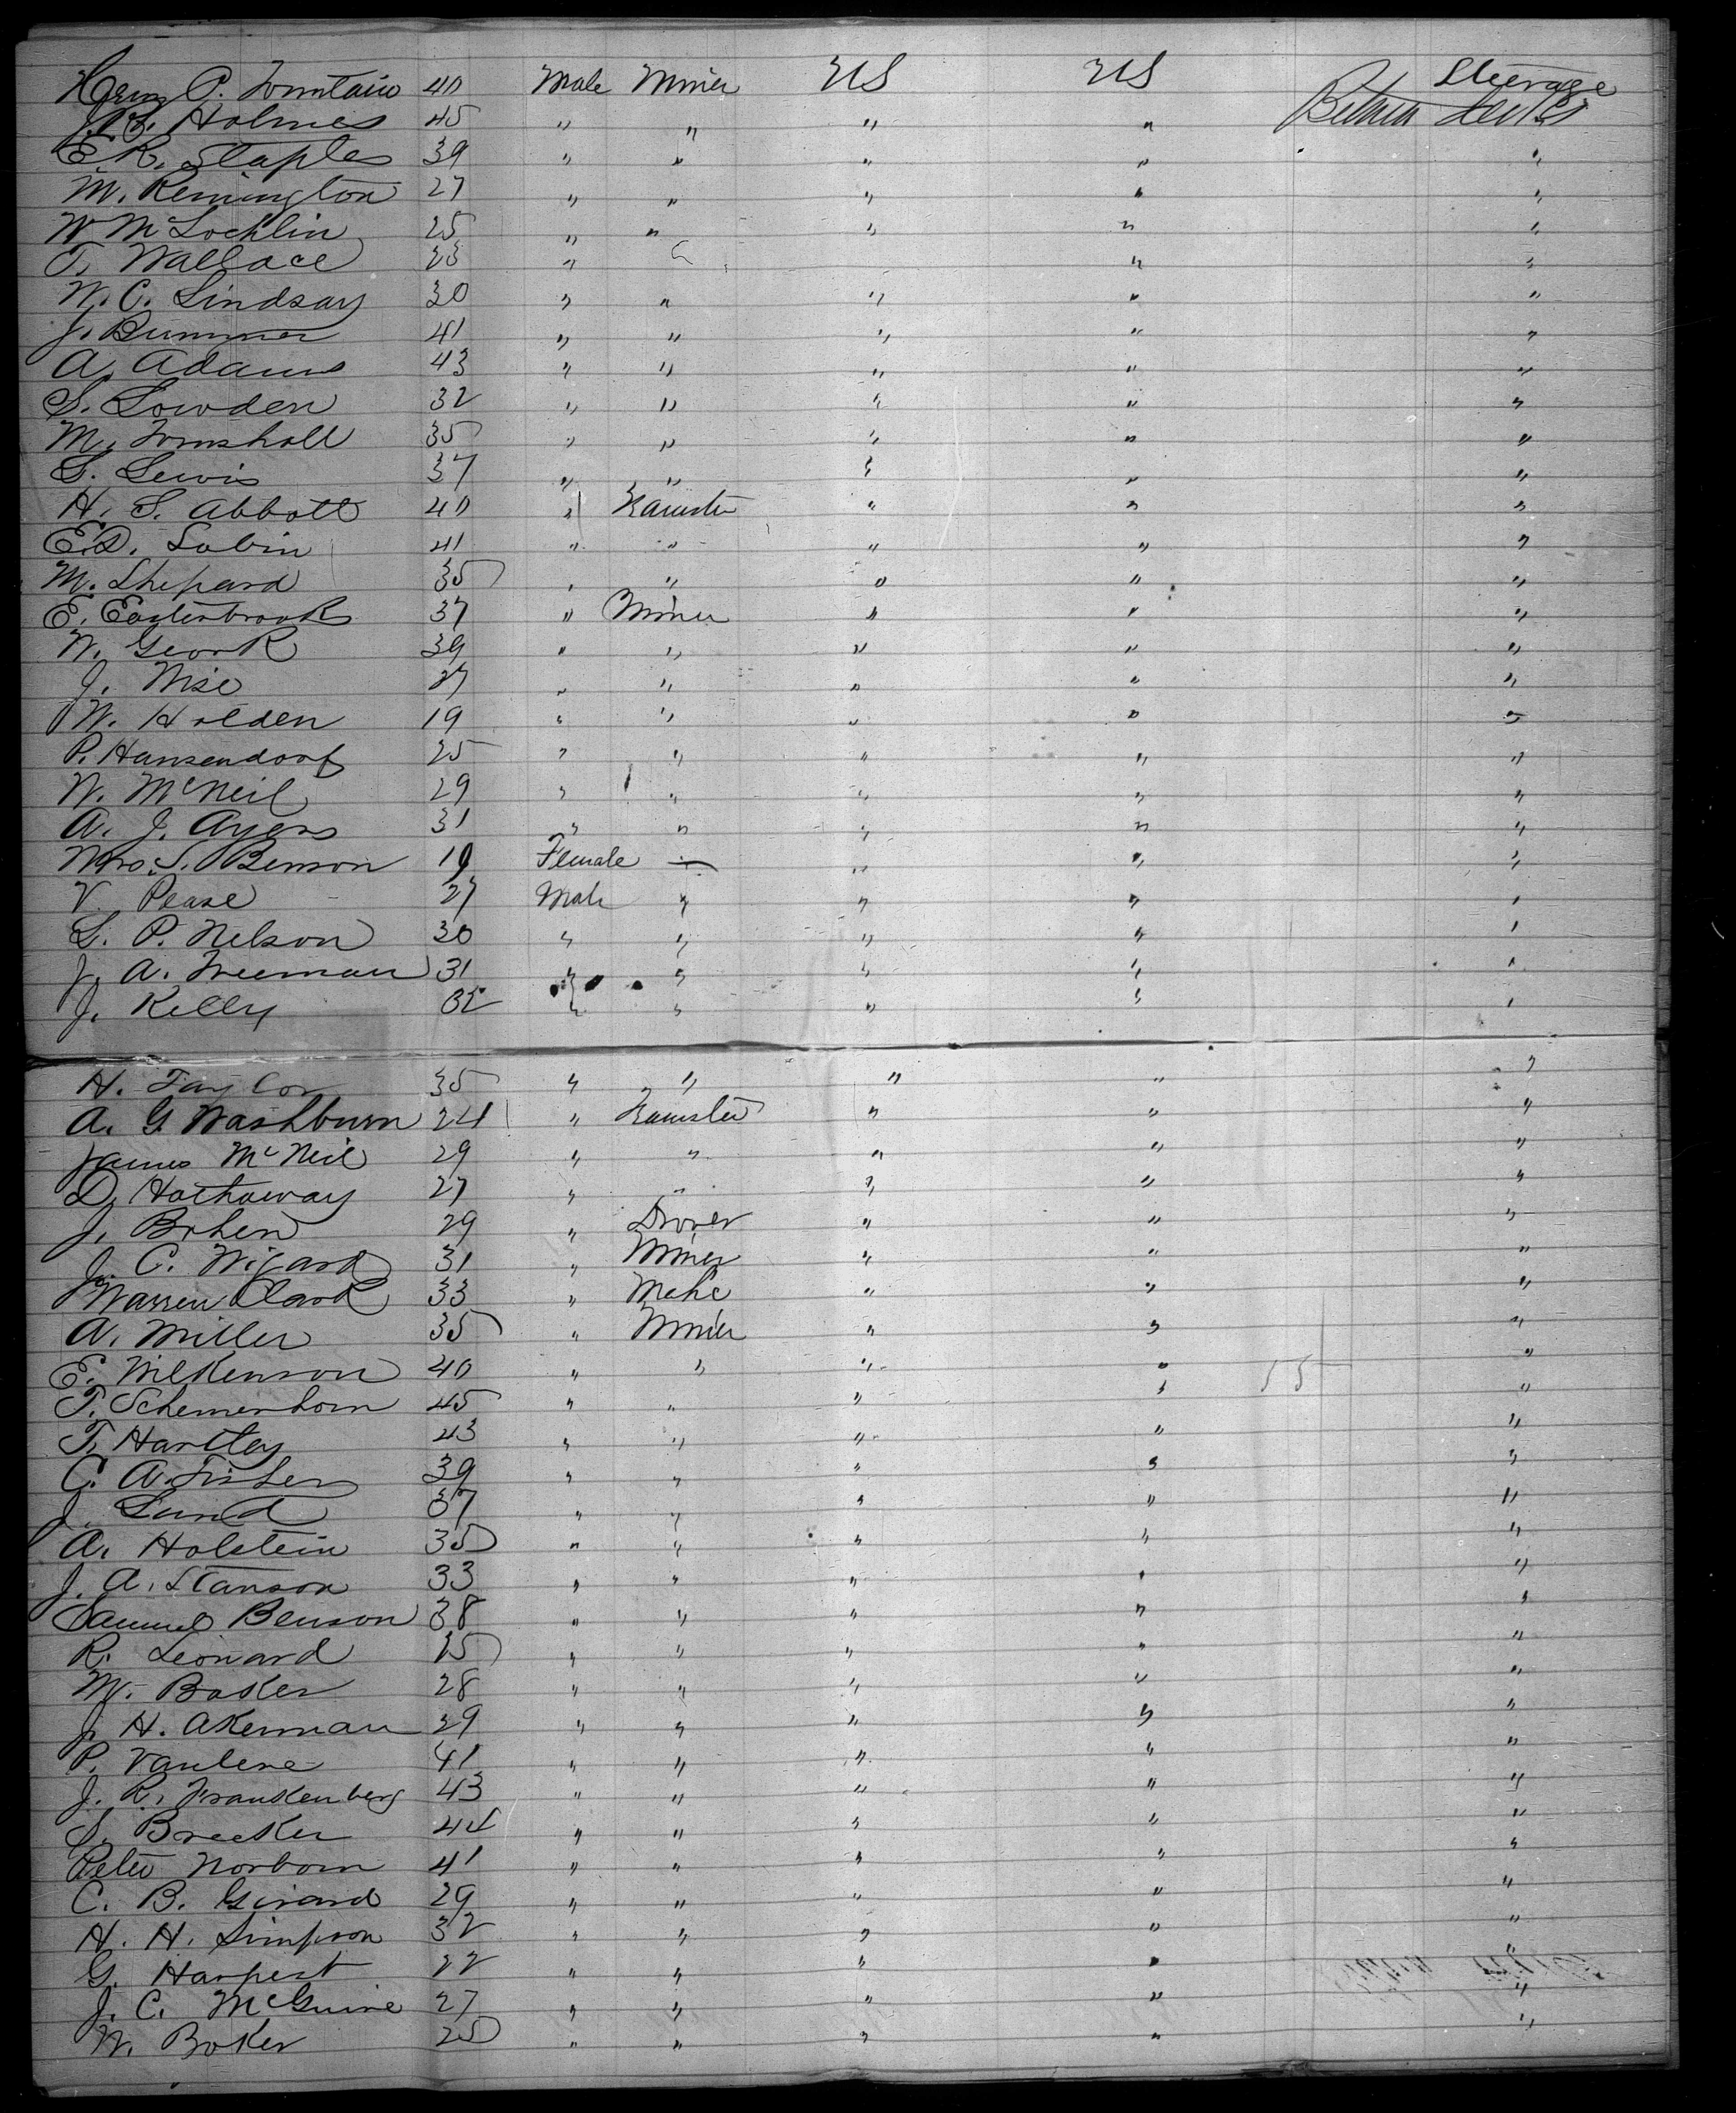 P. Fountain 40 Male Miner US US Steerage
Between Decks
Holmes 45 " " " " "
E. R. Staples 39 " " " " "
M. Remington 27 " " " " "
W McLochlin 25 " " " " "
T. Wallace 23 " " "
W. C. Lindsay 30 " " " " "
J. Bummer 41 " " " " "
A. Adams 43 " " " " "
S. Lowden 32 " " " " "
M. 35 " " " " "
S. Lewis 37 " " " " "
H. S. Abbott 40 " Teamster " " "
E. D. Sabin 41 " " " " "
M. Shepard 35 " " " " "
E. Easterbrook 37 " Miner " " "
W. 39 " " " " "
J. Wise 27 " " " " "
W. Holden 19 " " " " "
P. Hansendorf 25 " " " " "
W. McNeil 29 " " " " "
A. J. Ayers 31 " " " " "
Mrs S. Benson 19 Female — " " "
V. Pease 27 Male " " " "
S. P. Nelson 30 " " " " "
J. A. Freeman 31 " " " " "
J. Kelly 32 " " " " "
H. Taylor 35 " " " " "
A. G. Washburn 24 " Teamster " " "
James McNeil 29 " " " " "
D. Hathaway 27 " " " " "
J. Bohen 29 " Drover " " "
J. C. Wizard 31 " Miner " " "
Warren Clark 33 " Mehc " " "
A. Miller 35 " Miner " " "
E. Wilkenson 40 " " " " "
T. Schemerhorn 45 " " " " "
T. Hartley 43 " " " " "
C. A. Fisher 39 " " " " "
J. Lund 37 " " " " "
A. Holstein 35 " " " " "
J. A. Stanson 33 " " " " "
Samuel Benson 38 " " " " "
R. Leonard 25 " " " " "
M. Baker 28 " " " " "
J. H. Akerman 29 " " " " "
P. Vanlene 41 " " " " "
J. R. Frankenberg 43 " " " " "
S. Brecker 44 " " " " "
Peter Norborn 41 " " " " "
C. B. Girard 29 " " " " "
H. H. Simpson 32 " " " " "
G. Harpest 22 " " " " "
J. C. McGuire 27 " " " " "
W. Baker 25 " " " "